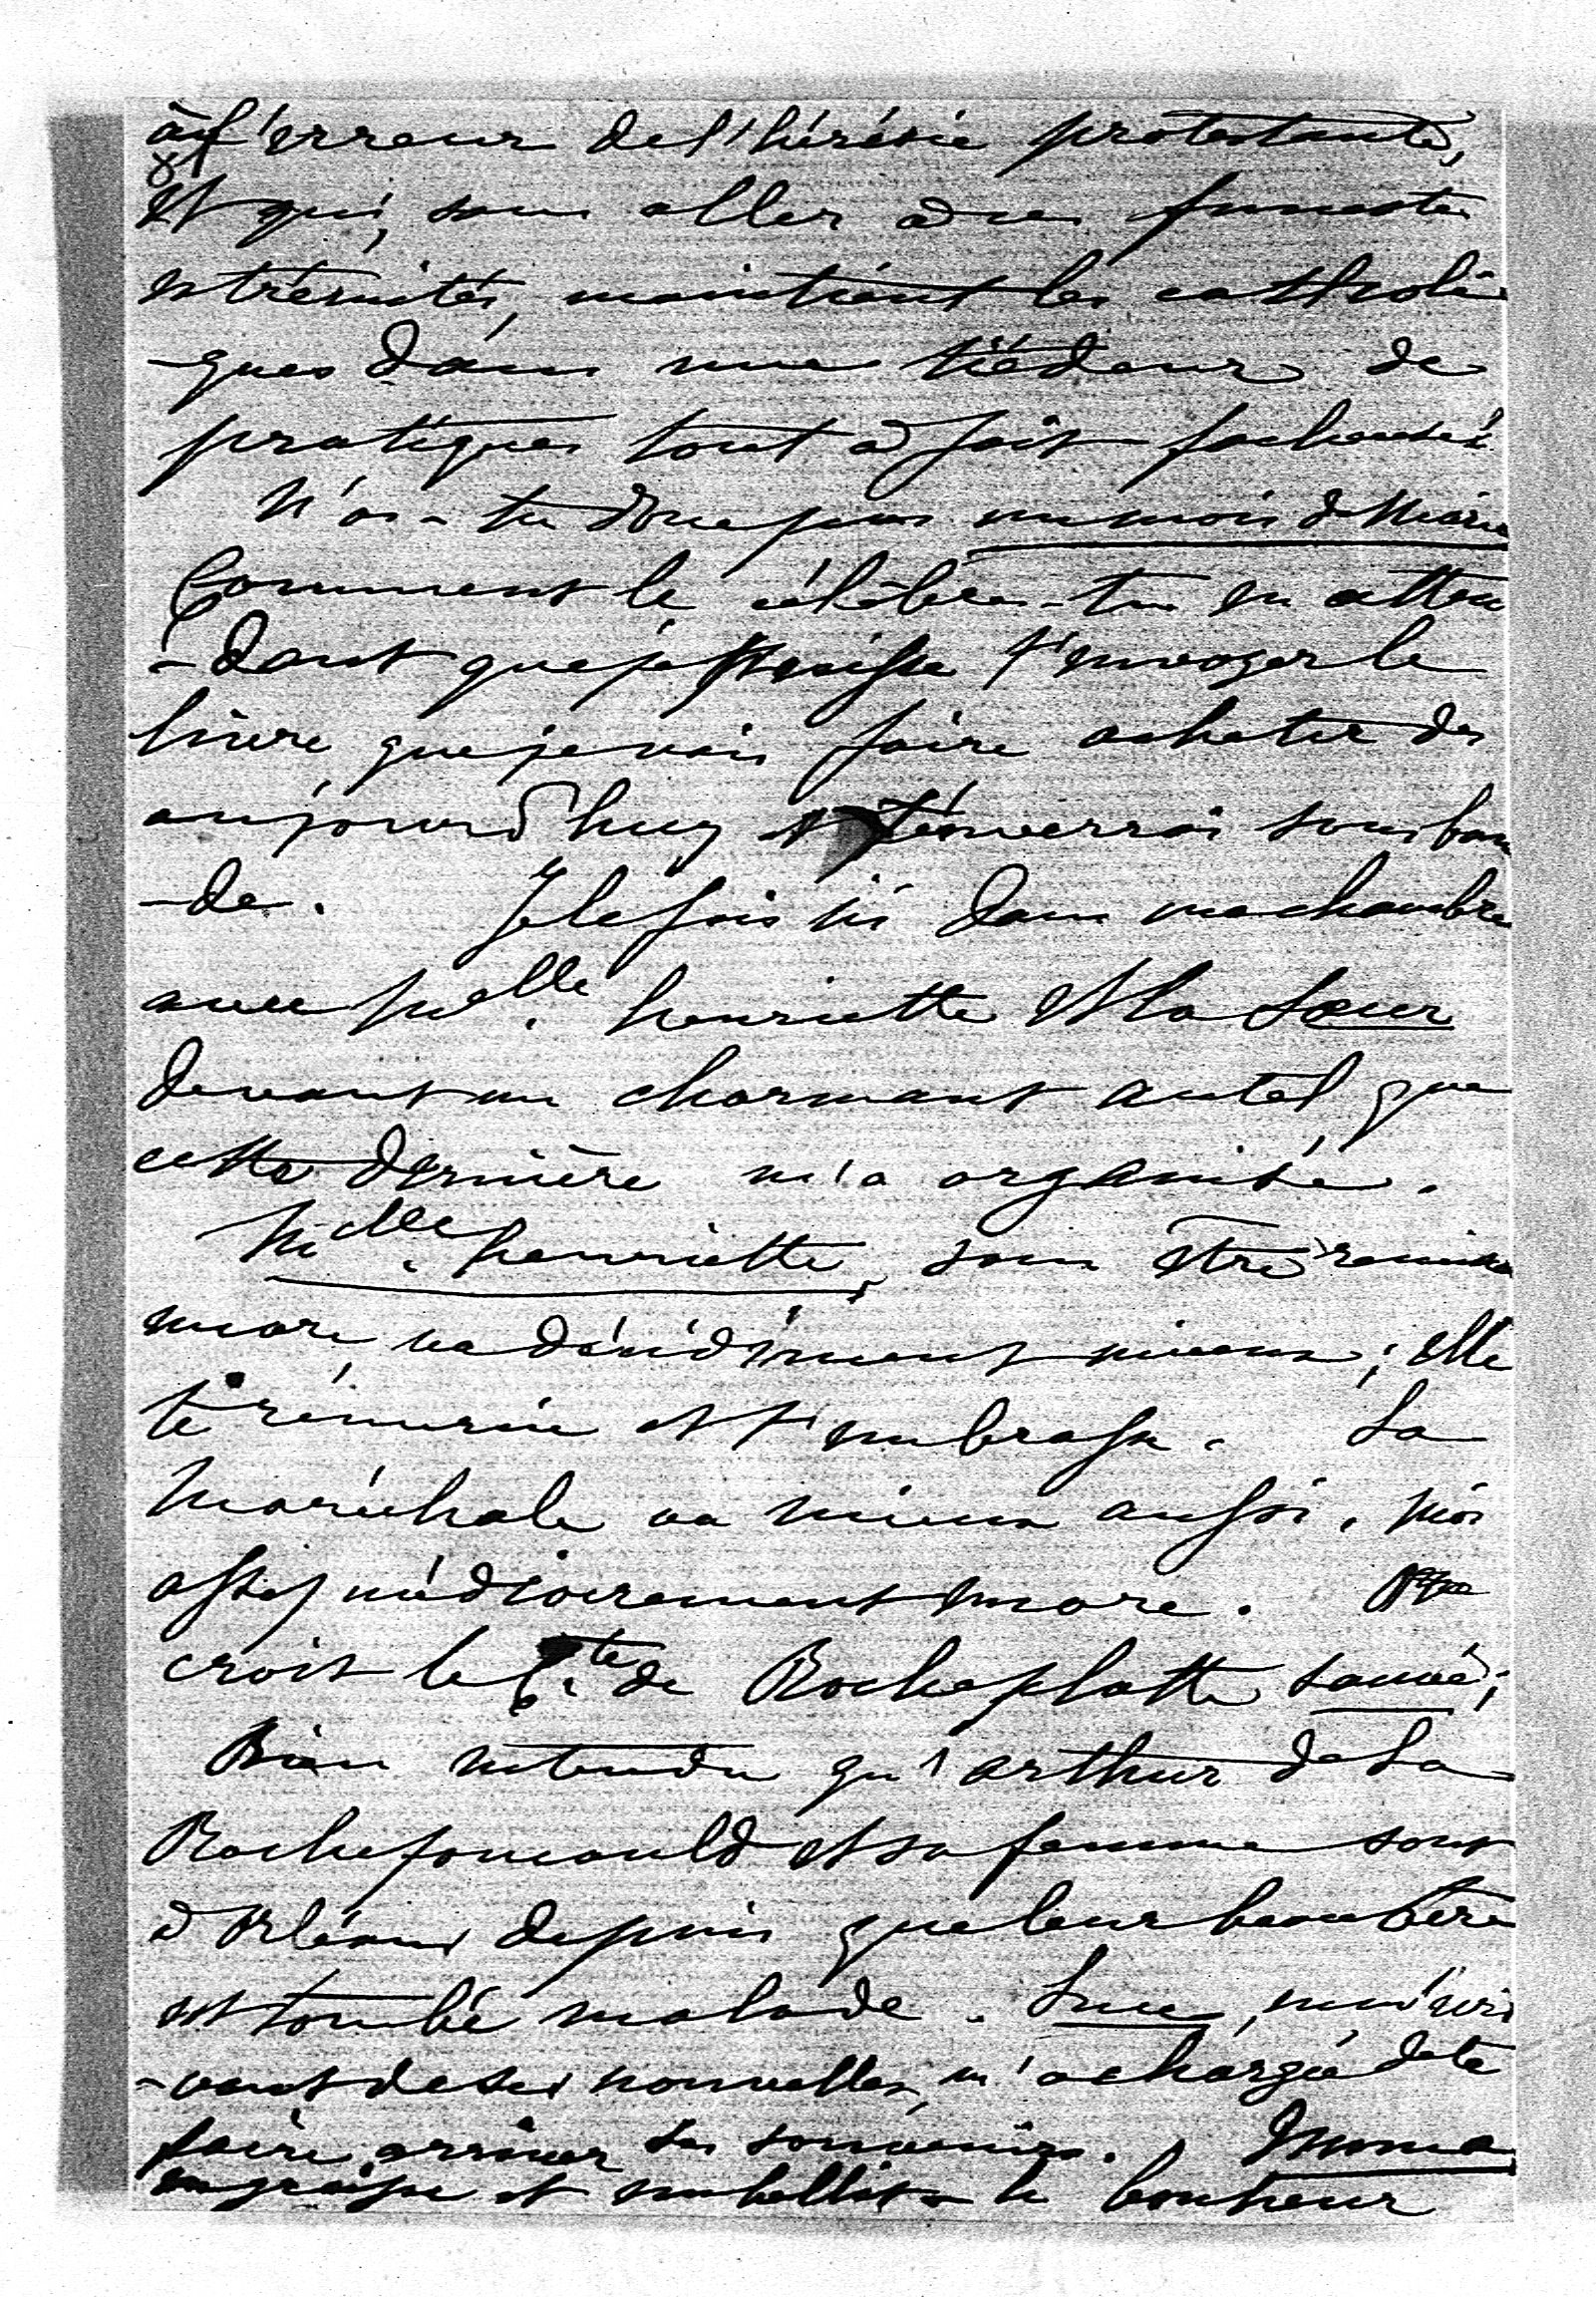 à l'erreur de l'hérésie protestante,
et qui, sans aller à ces funestes
extrémités, maintient les catholi
-ques dans une tiédeur de
pratiques tout à fait facheuses.
N'as-tu donc pas un mois de Marie
Comment le célèbres-tu en atten
-dant que je puisse t'envoyer le
livre que je vais faire acheter dès
aujourd'huy et t'enverrai sous ban
-de. Je le fais ici dans ma chambre
avec Melle. henriette et la Soeur
devant un charmant autel que
cette dernière m'a organisé.
Melle. henriette, sans être
encore va décidément mieux ; elle
te remercie et t'embrasse. La
Maréchale va mieux aussi, moi
assez médiocrement encore. On
croit le Cte. de Rocheplatte sauvé ;
Bien entendu qu'arthur de La
Rochefoucauld et sa femme sont
à Orléans depuis que leur beau frère
est tombé malade. Luce, m'écri
-vant de ses nouvelles, m'a chargée de te
faire arriver ses souvenirs. Emma
engraisse et embellit le bonheur